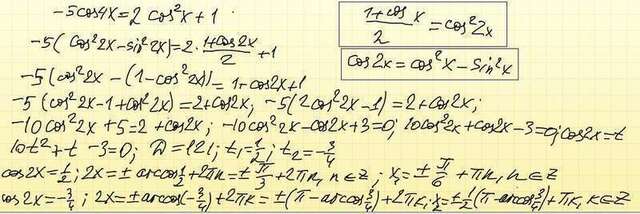 -5cos4x=2cos²x+1
1+cosx/2=cos²2x
-5(cos²2x-sin²2x)=2·1+cos2x/2+1
cos2x=cos²x-sin²x
-5(cos²2x-(1-cos²2x))=1+cos2x+1
-5(cos²2x-1+cos²2x)=2+cos2x; -5(2cos²2x-1)=2+cos2x;
-10cos²2x+5=2+cos2x; -10cos²2x-cos2x+3=0; 10cos²2x+cos2x-3=0; cos2x=t
10t²+t-3=0; D=121; t₁=1/2; t₂=-3/4
cos2x=1/2; 2x=±arccos1/2+2πk=±π/3+2πk, k∈Z; x₁=±π/6+πk, k∈Z
cos2x=-3/4; 2x=±arccos(-3/4)+2πk=±(π-arccos3/4)+2πk; x=±1/2(π-arccos3/4)+πk, k∈Z